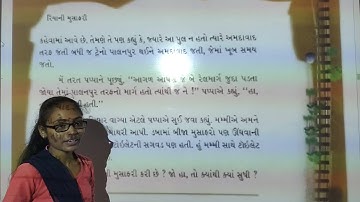 રિયાની મુસાફરી
કહેવામાં આવે છે. તેમણે તે પણ કહ્યું કે, જ્યારે આ પુલ ન હતો ત્યારે અમદાવાદ
તરફ જતી બધી જ ટ્રેનો પાલનપુર થઈને અમદાવાદ જતી, જેમાં ખૂબ સમય
જતો.
મેં તરત પપ્પાને પૂછ્યું, "આગળ આપણે જે બે રેલમાર્ગ જુદા પડતા
જોયા તેમાં પાલનપુર તરફનો માર્ગ હતો ત્યાંથી જ ને !" પપ્પાએ કહ્યું, "હા,
હતી."
વાગ્યા એટલે પપ્પાએ સૂઈ જવા કહ્યું. મમ્મીએ અમને
પાથરી આપી. ડબામાં બીજા મુસાફરો પણ ઊંઘવાની
ટોઇલેટની સગવડ પણ હતી. હું મમ્મી સાથે ટોઇલેટ
મુસાફરી કરી છે ? જો હા, તો ક્યાંથી ક્યાં સુધી ?